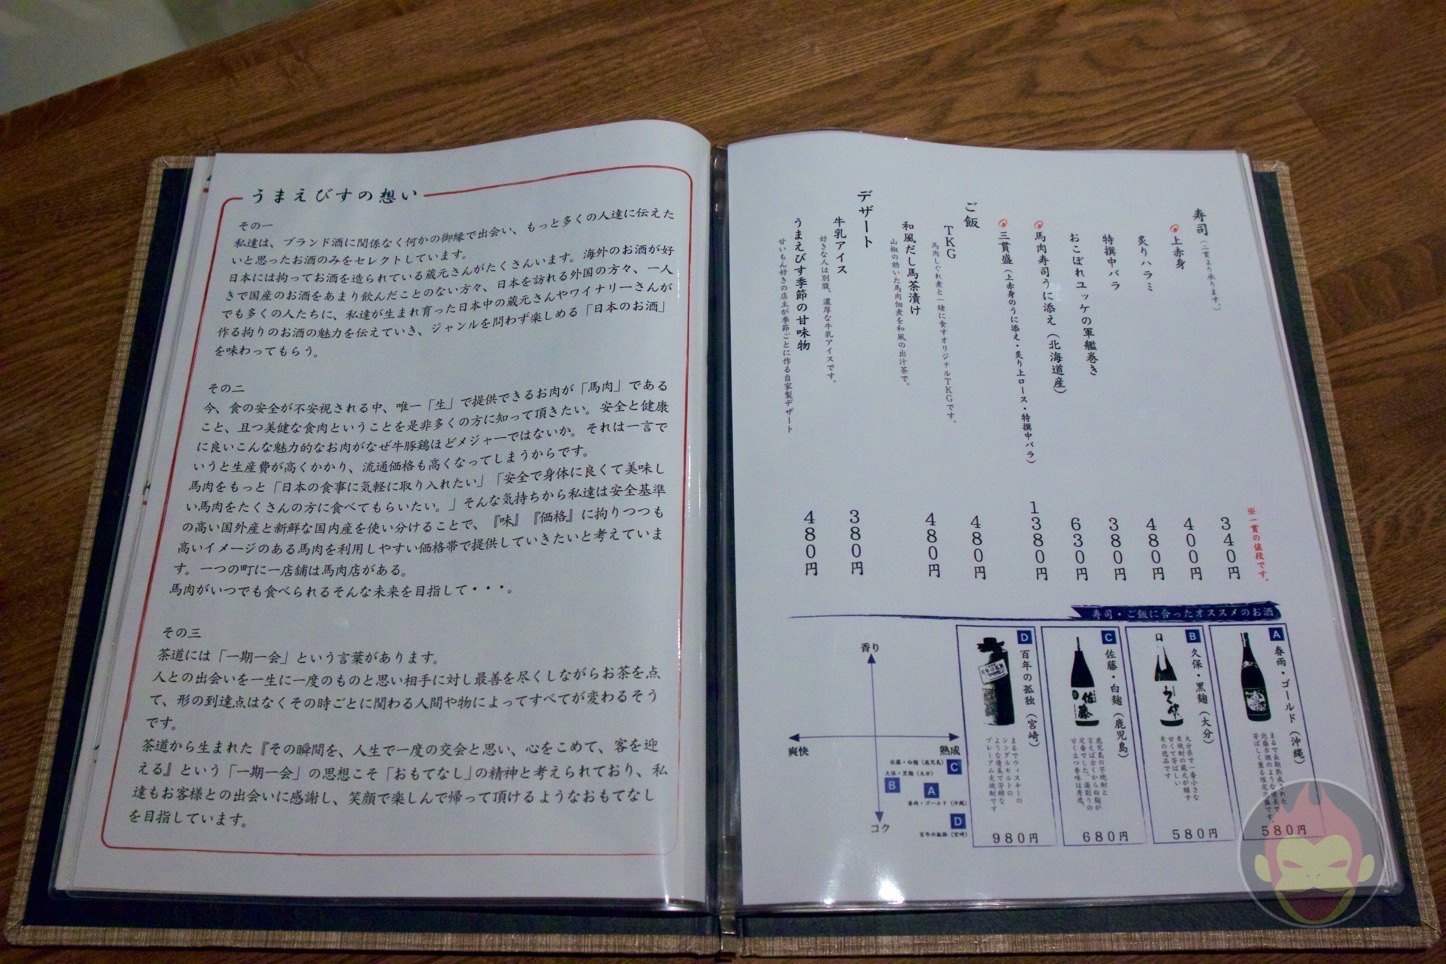 うまえびすの想い
その一
私達は、ブランド酒に関係なく何かの御縁で出会い、もっと多くの人達に伝えた
いと思ったお酒のみをセレクトしています。
日本には拘ってお酒を造られている蔵元さんがたくさんいます。海外のお酒が好
きで国産のお酒をあまり飲んだことのない方々、日本を訪れる外国の方々、一人
でも多くの人たちに、私達が生まれ育った日本中の蔵元さんやワイナリーさんが
作る拘りのお酒の魅力を伝えていき、ジャンルを問わず楽しめる「日本のお酒」
を味わってもらう。
その二
今、食の安全が不安視される中、唯一「生」で提供できるお肉が「馬肉」である
こと、且つ美健な食肉ということを是非多くの方に知って頂きたい。安全と健康
に良いこんな魅力的なお肉がなぜ牛豚鶏ほどメジャーではないか。それは一言で
いうと生産費が高くかかり、流通価格も高くなってしまうからです。
馬肉をもっと「日本の食事に気軽に取り入れたい」「安全で身体に良くて美味し
い馬肉をたくさんの方に食べてもらいたい。」そんな気持ちから私達は安全基準
の高い国外産と新鮮な国内産を使い分けることで、『味』『価格』に拘りつつも
高いイメージのある馬肉を利用しやすい価格帯で提供していきたいと考えていま
す。一つの町に一店舗は馬肉店がある。
馬肉がいつでも食べられるそんな未来を目指して・・・。
その三
茶道には「一期一会」という言葉があります。
人との出会いを一生に一度のものと思い相手に対し最善を尽くしながらお茶を点
て、形の到達点はなくその時ごとに関わる人間や物によってすべてが変わるそう
です。
茶道から生まれた『その瞬間を、人生で一度の交会と思い、心をこめて、客を迎
える』という「一期一会」の思想こそ「おもてなし」の精神と考えられており、私
達もお客様との出会いに感謝し、笑顔で楽しんで帰って頂けるようなおもてなし
を目指しています。
寿司(二貫より承ります。)
※一貫の値段です。
上赤身 340円
炙りハラミ 400円
特撰中バラ 480円
おこぼれユッケの軍艦巻き 380円
馬肉寿司うに添え(北海道産) 630円
三貫盛(上赤身のうに添え・炙り上ロース・特撰中バラ) 1380円
ご飯
TKG 480円
馬肉しぐれ煮と一緒に食すオリジナルTKGです。
和風だし馬茶漬け 480円
山椒の効いた馬肉佃煮を和風の出汁茶で。
デザート
牛乳アイス 380円
好きな人は別腹、濃厚な牛乳アイスです。
うまえびす季節の甘味物 480円
せいもん好きの店主が季節ごとに作る自家製デザート
寿司・ご飯に合ったオススメのお酒
A
春雨・ゴールド(沖縄)
580円
B
久保・黒麹(大分)
大分県で一番小さな
麦焼酎の蔵元が醸す
甘くて芳ばしい
麦の逸品です。
580円
C
佐藤・白麹(鹿児島)
680円
D
百年の孤独(宮崎)
まるでウィスキーの
シングルモルトの
ような優美で芳醇な
プレミアム麦焼酎です
980円
香り
爽快
熟成
コク
佐藤・白麹(鹿児島)
C
久保・黒麹(大分)
B
A
春雨・ゴールド(沖縄)
D
百年の孤独(宮崎)